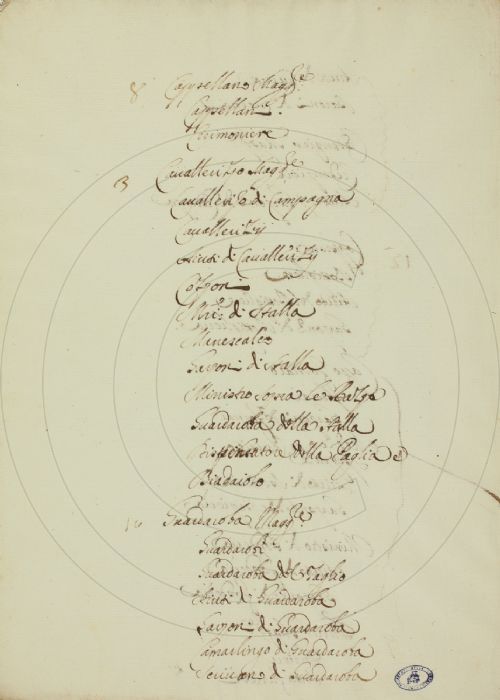 8 Cappellano Magg.re
Cappellani.
Cerimoniere
3 Cavallerizzo Magg.re
Cavalleriz.o di Campagna
Cavallerizzi
Aiuti di Cavallerizzi
Cozzoni
di Stalla
Menescalco
Garzoni di Stalla
Ministro sopra le
Guardaroba della Stalla
Dispensatore della Paglia e
Biadaiolo
Guardaroba Magg.re
Guardarobi
Guardaroba del Taglio
Aiuti di Guardaroba
Garzoni di Guardaroba
di Guardaroba
Scrivano di Guardaroba